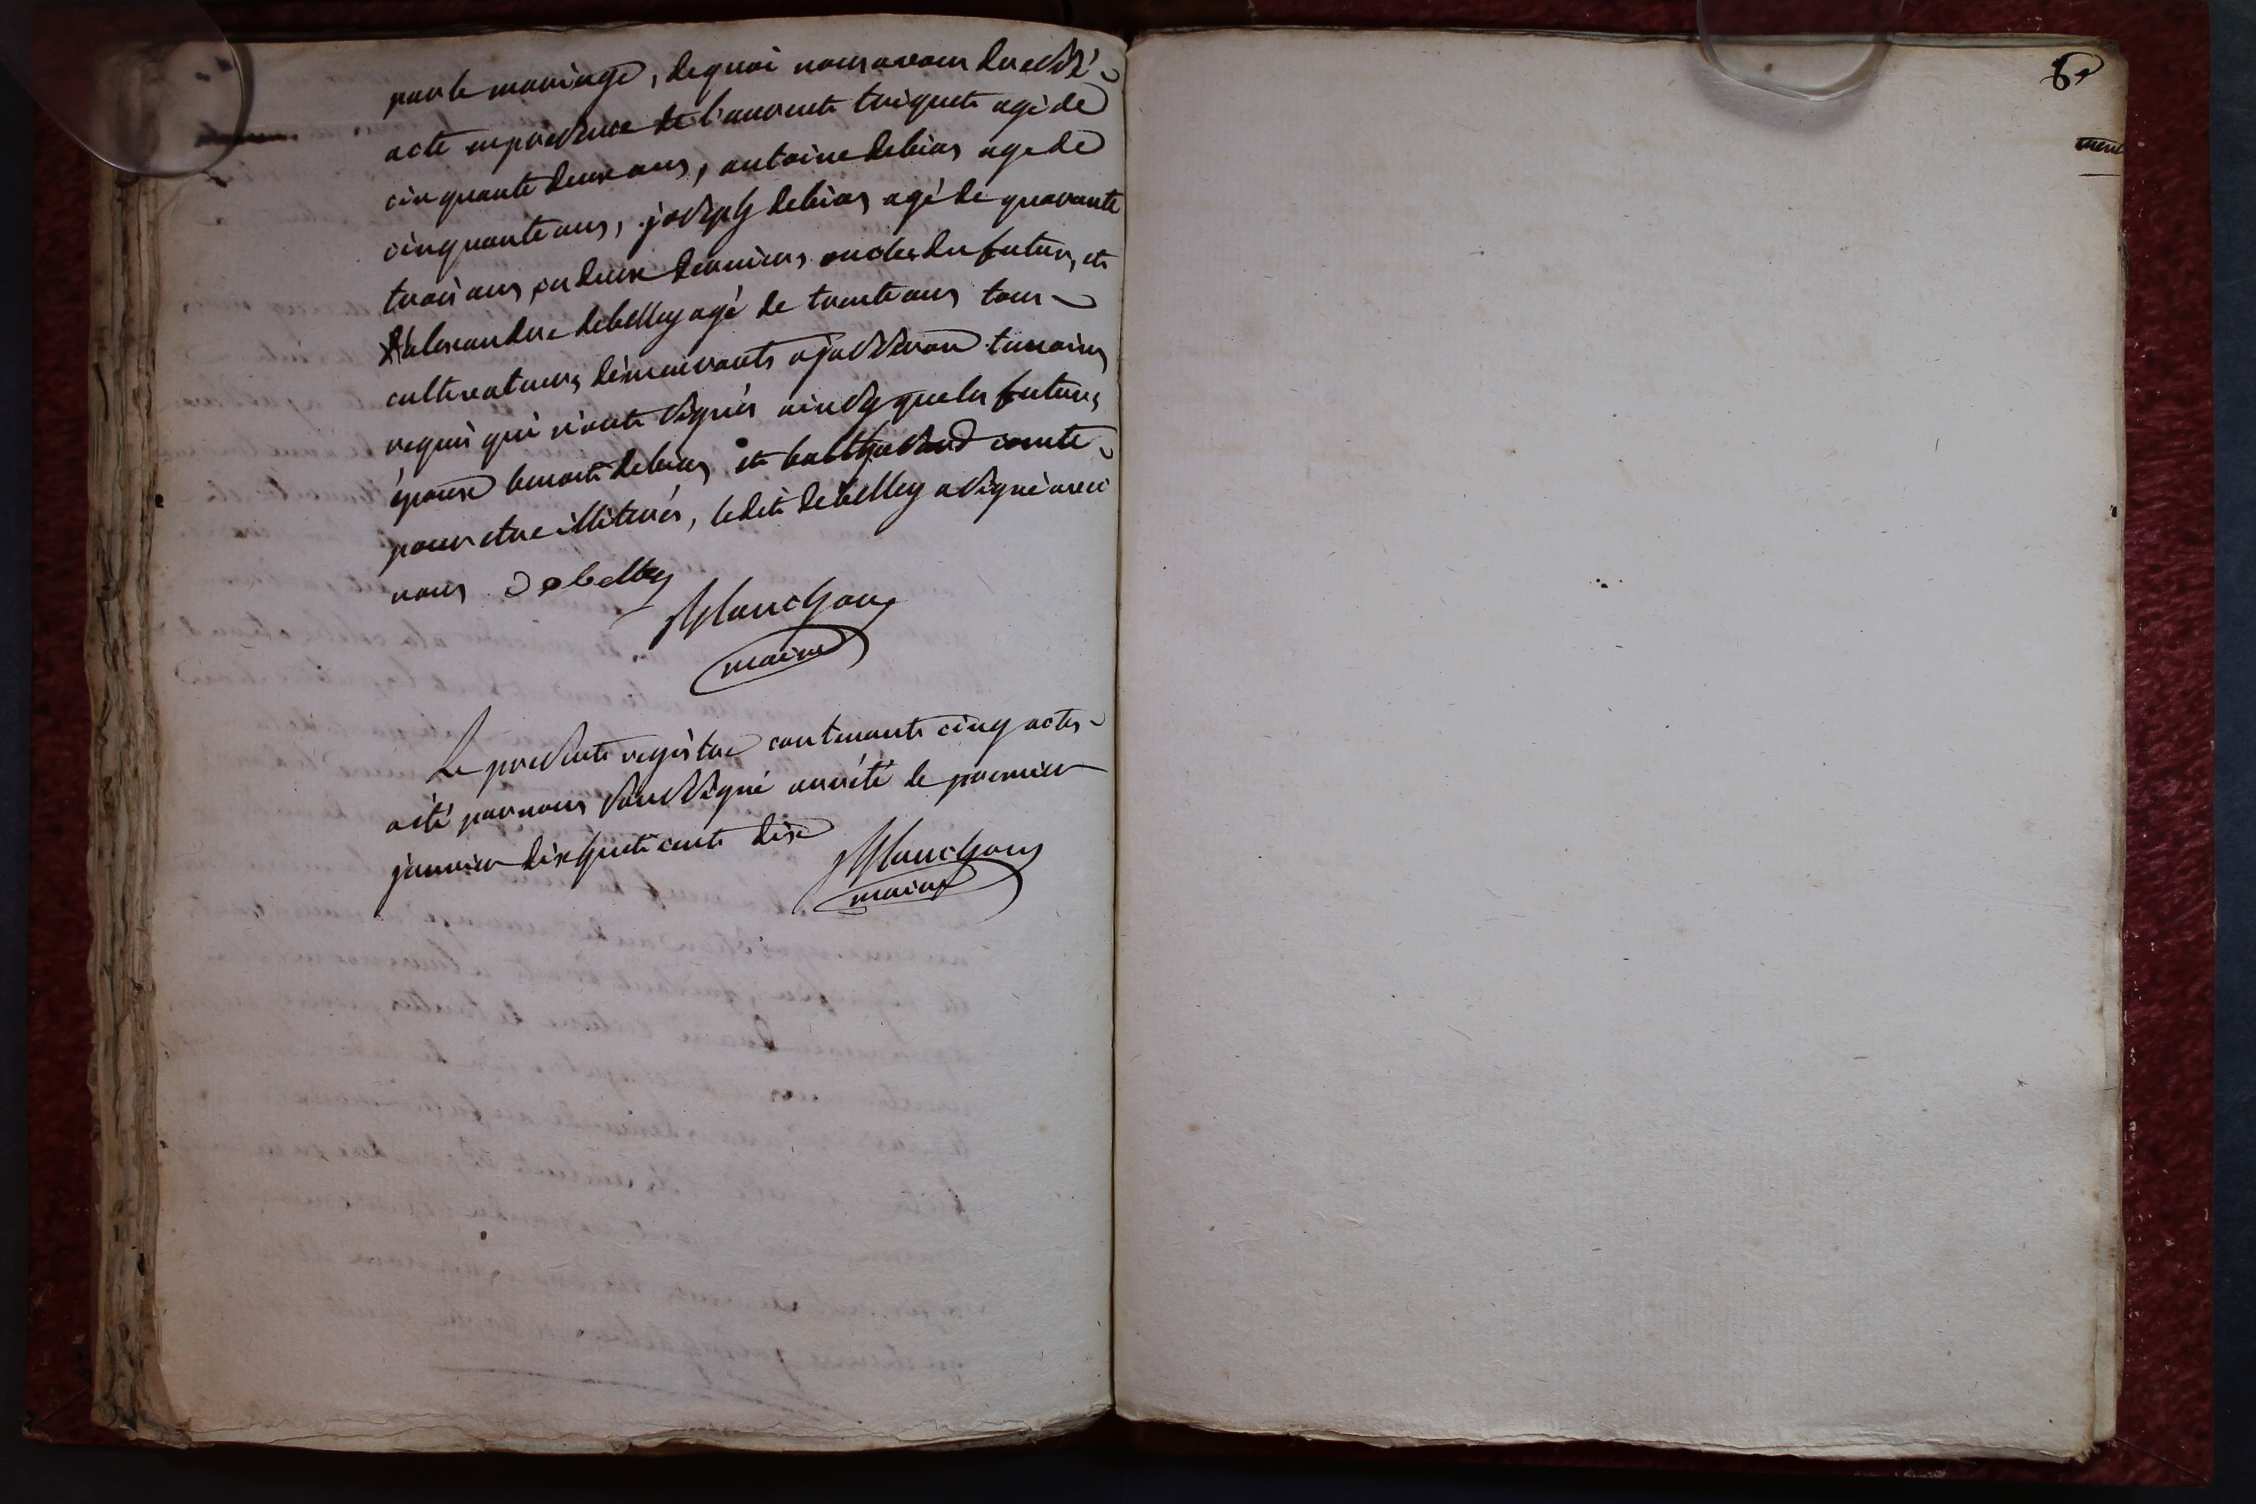 par le mariage, de quoi nous avons dressé
acte en presence de laurente triquete agé de
cinquante deux ans, antoine debias agé de
cinquante ans, joseph debias agé de quarante
trois ans, ces deux derniers oncles du futur, et
d'alexandre debelley agé de trente ans tous
cultivateurs, démeurants a jasseron temoins
requis qui n'onte signés ainsy que les futurs
épouse benoite debias et balthasard comte
pour etre illiterés, ledit debelley a signé avec
nous Debelley
Planchon
maire
Le presente registre contenante cinq actes
a été par nous soussigné arrété le premier
janvier dix huite cente dix
Planchon
maire